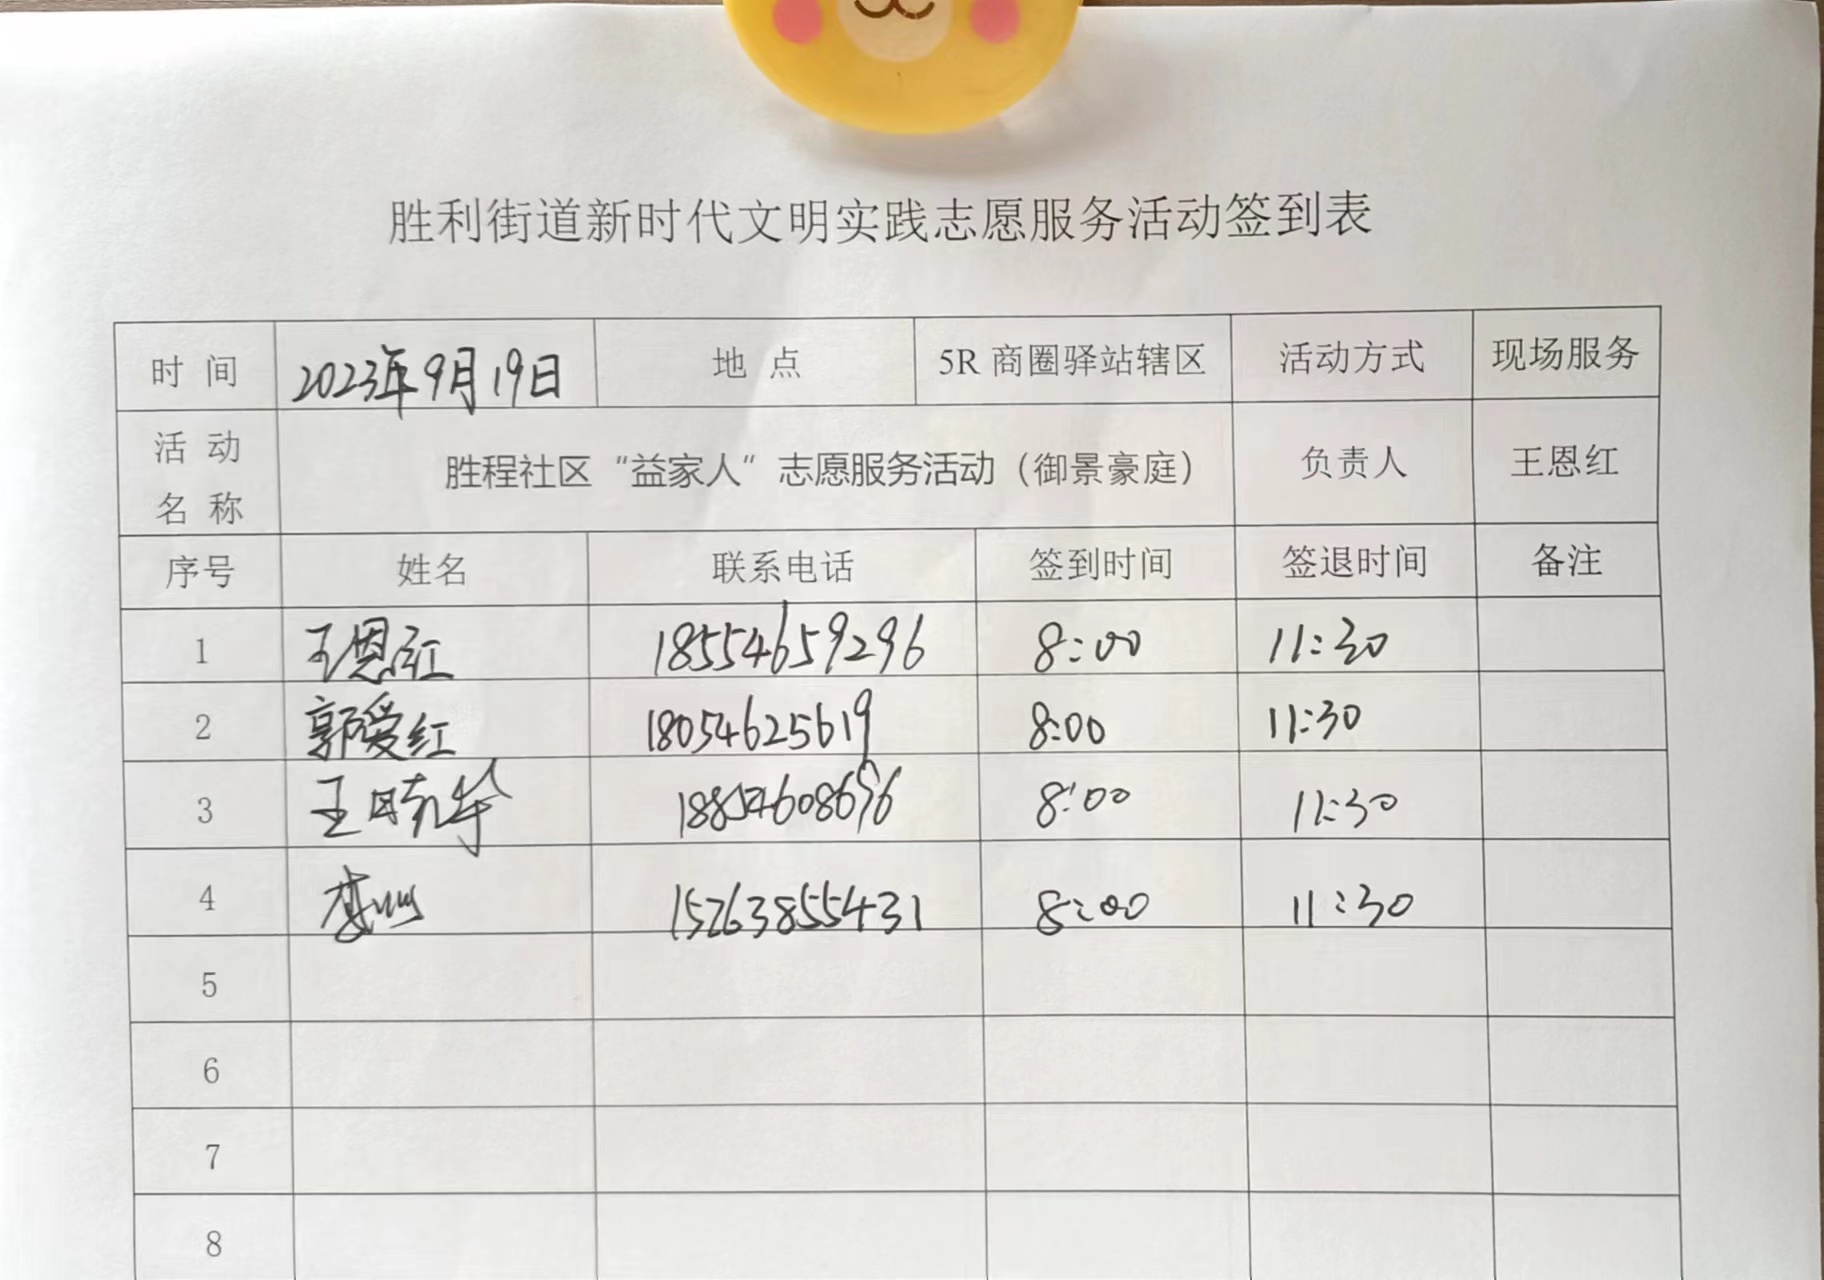 胜利街道新时代文明实践志愿服务活动签到表
时 间 2023年9月19日 地 点 5R 商圈驿站辖区 活动方式 现场服务
活 动 名 称 胜程社区“益家人”志愿服务活动（御景豪庭） 负责人 王恩红
序号 姓名 联系电话 签到时间 签退时间 备注
1 王恩红 18554659296 8:00 11:30
2 郭爱红 18054625619 8:00 11:30
3 王晓华 18854608696 8:00 11:30
4 15263855431 8:00 11:30
5
6
7
8